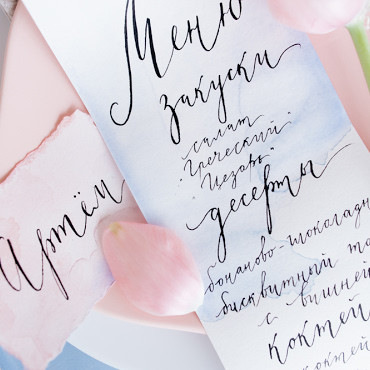 Меню
закуски
салат
"Греческий"
"Цезарь"
десерты
бонаново-шоколадн
бисквитный то
с вишней
коктей
коктей
Артём